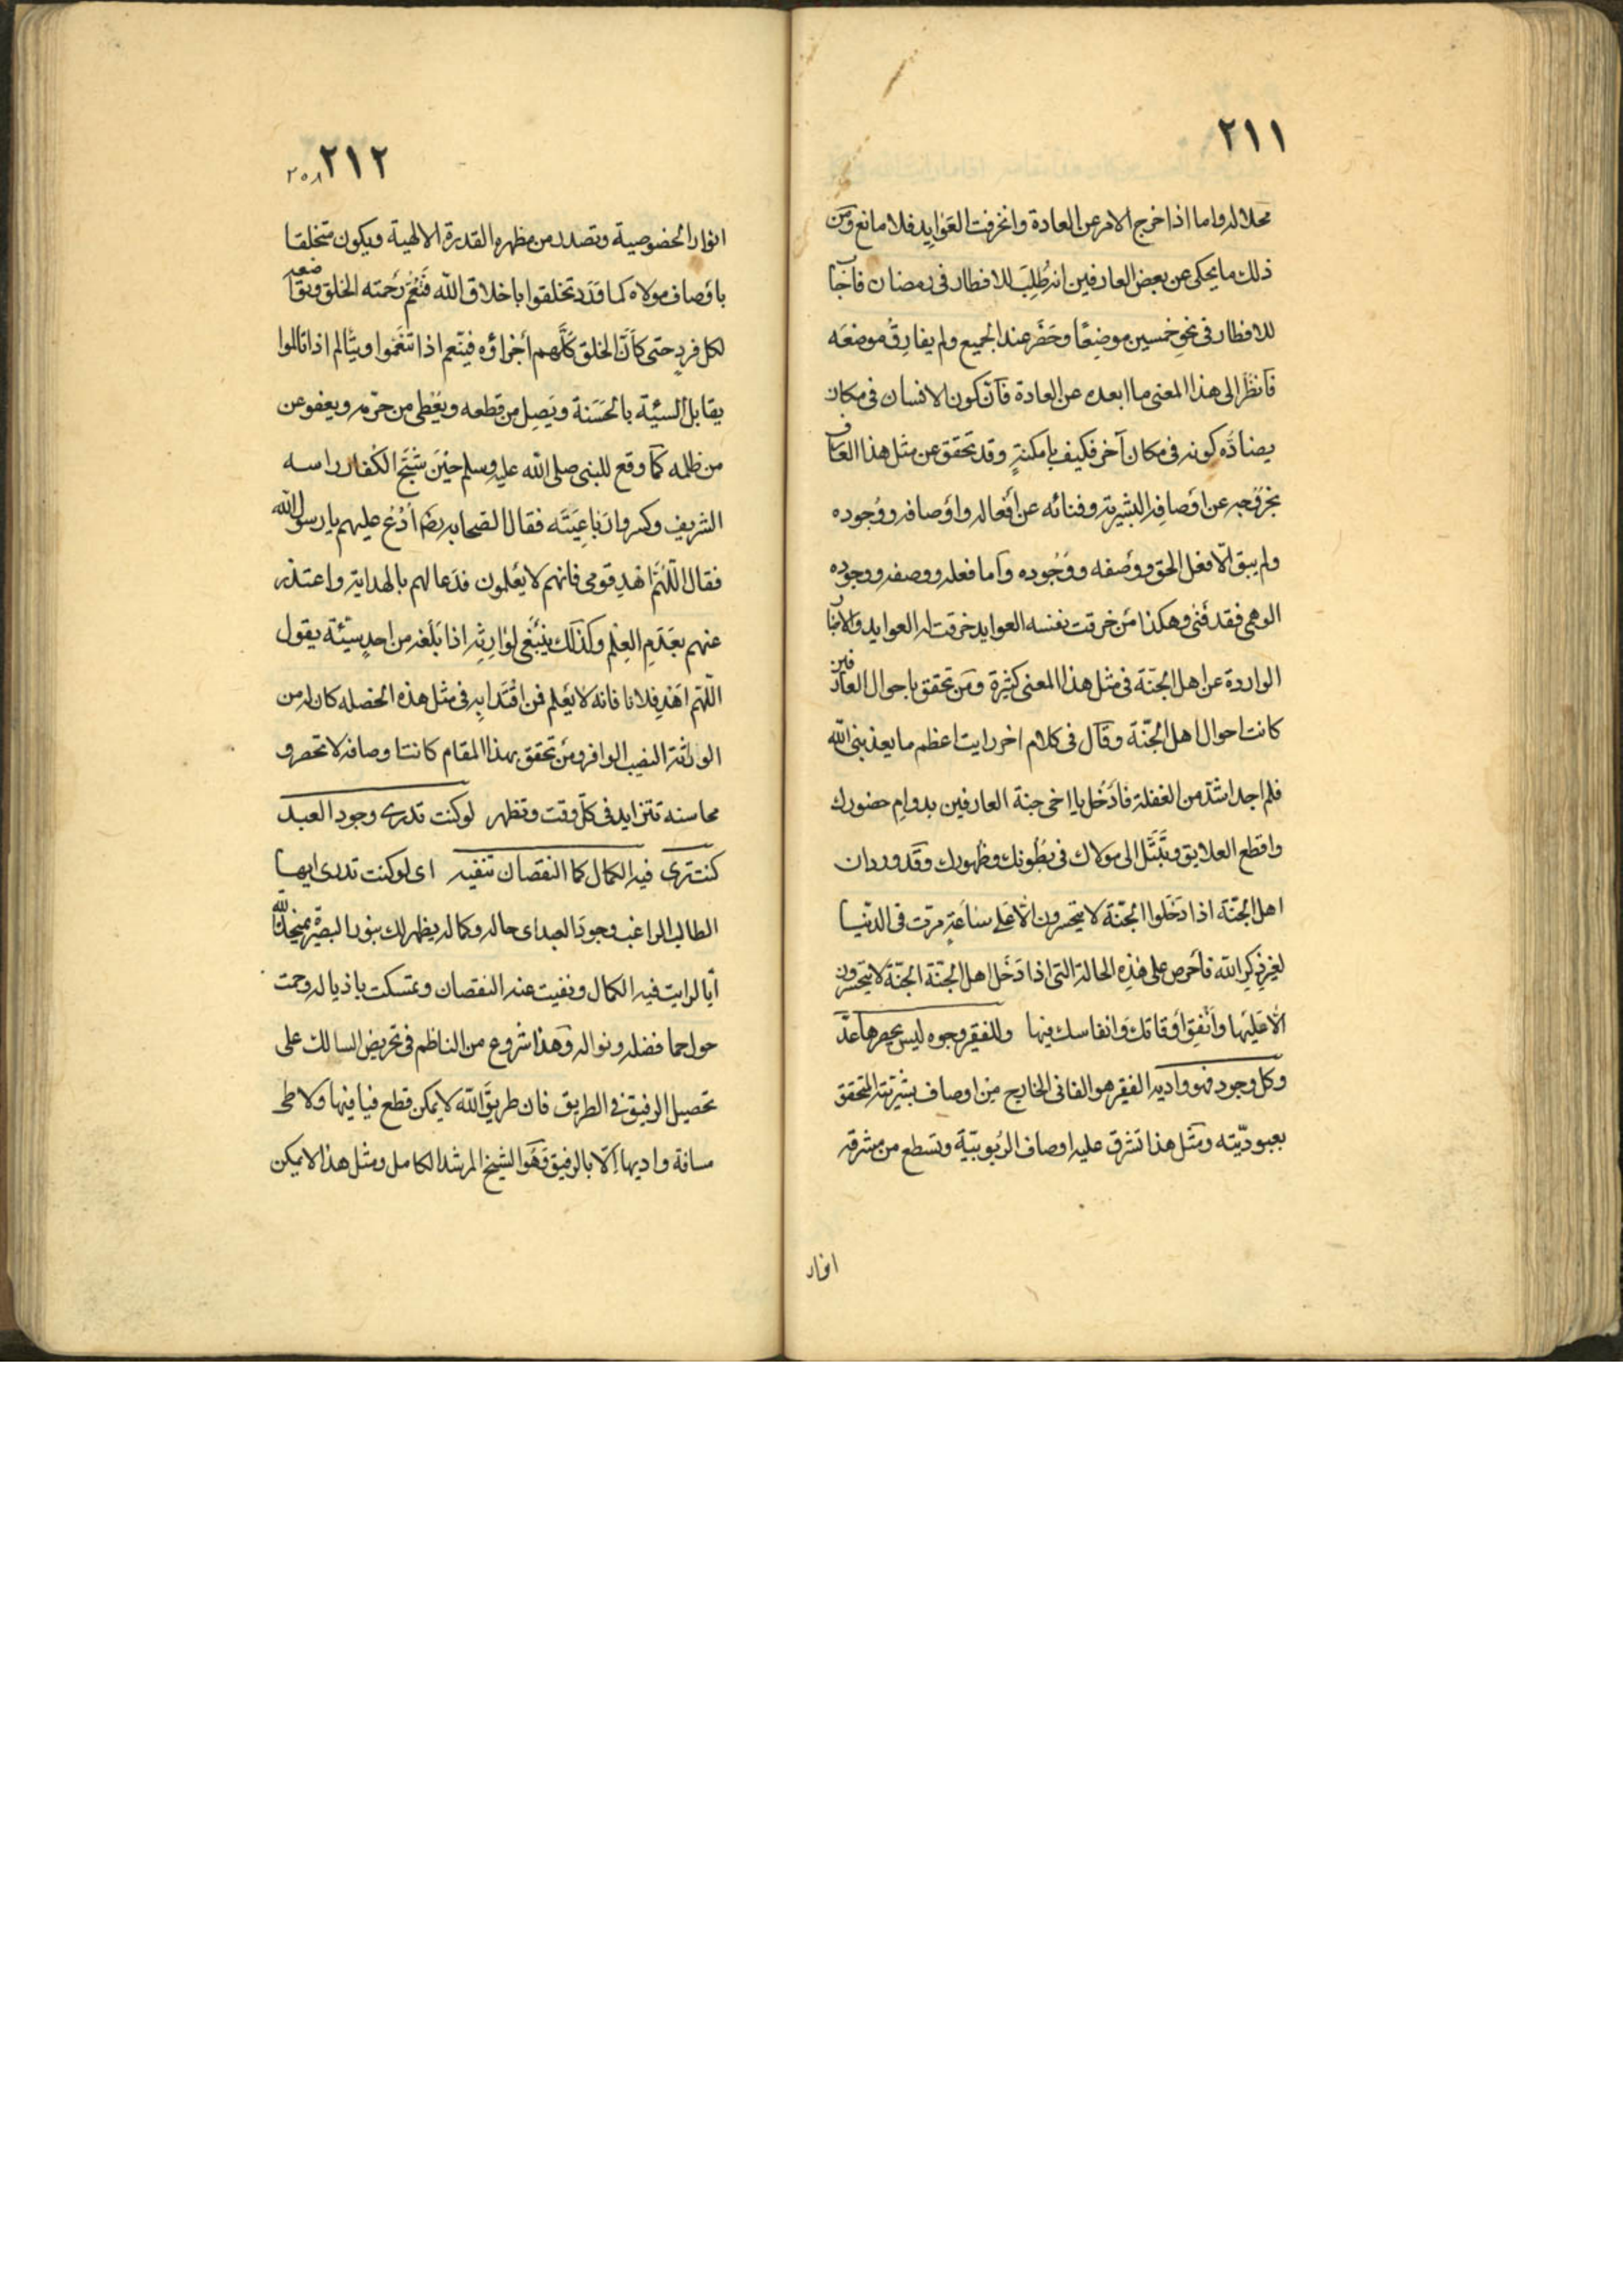 ٢١١
محلا له واما اذا خرج الامر عن العادة وانخرقت العَوَايد فلا مانع وَمن
ذلك ما يحكى عن بعض العارفين انه طُلِبَ للافطار فى رمضان فاجَاب
للافطار فى نحو خمسين موضِعًا وحَضَر عند الجميع ولم يفارِق موضعَه
فَانظُر الى هذا المعنى ما ابعده عن العادة فاَن كون الانسان فى مكان
يضادُّه كونه فى مكان آخر فكيف بامكنةٍ وقد تحقق عن مثل هذا العارف
بخرُوجه عن اوصافِه البشرية وفنائه عن أفعاله واَوْصافه ووُجوده
ولم يبق الّا فعل الحق ووَصْفه ووُجُوده وَاما فعله ووصفه ووجوده
الوهمى فقد فَنى وهكذا مَن خرقت نفسه العوايد خرقت له العوايد والاخبار
الواردة عن اهل الجنّة فى مثل هذا المعنى كثيرة ومَن تحقق باحوال العارفين
كانت احوال اهل الجنّة وقَال فى كلام اخر رايت اعظم ما يعذبنى الله
فلم اجد اشدّ من الغفلة فادْخُل يا اخى جنة العارفين بدوامِ حضورك
واقطع العلايق وتَبَتَّل الى مولاك فى بُطُونك وظهورك وقَد ورد ان
اهل الجنّة اذا دَخَلوا الجنّة لا يتحسرون الّا عَلى ساعَةٍ مرّت فى الدّنيا
لغيرِ ذِكرِ الله فاحْرص على هٰذِه الحالة التى اذا دَخَل اهل الجنّة الجنّة لا يتحسرون
الّا عَليْها واَنْفِق اَوْقاتكَ وَانفاسك فيها وللفقير وجوه ليس يحصرها عدّ
وكل وجود فهو واديه الفقير هو الفانى الخارج من اوصاف بشريّته المتحقق
بعبوديّته ومثل هذا تشرق عليه اوصاف الرّبوبيّة وتسطع من مشرقه
انوار
٢١٢
٢٥٨
انوار الخصوصية وتصدر من مظهره القدرة الالهية ويكون متخلقا
باوْصاف مولاه كما وَرَد تخلقوا باخلاق الله فَتَعُمّ رَحْمته الخلق ويتواضع
لكل فردٍ حتى كاَنَّ الخلق كُلَّهم أجْزاؤه فيتنعم اذا تنعّموا ويتألم اذا تالموا
يقابل السيئة بالحَسَنة ويَصِل من قطعه ويَعْطى من حرّمه ويعفو عن
من ظلمه كمَا وقع للنبى صلى الله عليه وسلم حيْنَ شَجَّ الكفار راسه
الشريف وكسروا رَبَاعِيَتَه فقال الصحابه رضم اُدْعُ عليهم يا رسول الله
فقال اللّهُمَّ اهْدِ قومى فانهم لا يعْلمون فدَعا لهم بالهداية واعتذر
عنهم بعَدَمِ العِلْم وكَذلك ينبَغى لوَارِثِه اذا بَلَغه من احدٍ سيّئة يقول
اللّهم اَهْدِ فلانا فانه لا يعْلم فمن اقْتَدا به فى مثل هذه الخصله كان له من
الوراثة النصيب الوافر ومَن تحقق بهذا المقام كانت اوصافه لا تحصر و
محاسنه تتزايد فى كلّ وقت وتظهر لو كنت تدرى وجود العبد
كنت ترى فيه الكمال كما النقصان تنفيه اى لو كنت تدرى ايها
الطالب الراغب وجودَ العبد اى حاله وكماله يظهر لك بنور البصيرة يمنحه الله
اياه لرايت فيه الكمال ونفيت عنه النقصان وتمسكت باذياله وحمت
حول حما فضله ونواله وَهذا شروع من الناظم فى تحريض السالك على
تحصيل الرفيق فى الطريق فان طريقَ الله لا يمكن قطع فيافيها ولا طى
مسافة واديها الّا بالرفيق وَهُو الشيخ المرشد الكامل ومثل هذا لا يمكن